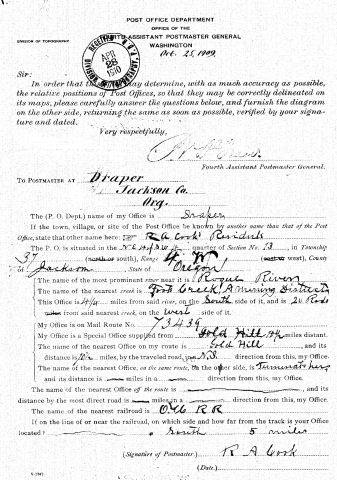 POST OFFICE DEPARTMENT
OFFICE OF THE
FOURTH ASSISTANT POSTMASTER GENERAL
DIVISION OF TOPOGRAPHY
WASHINGTON
Oct. 25, 1909.
RECEIVED
APR
28
1910
Sir:
In order that the may determine, with as much accuracy as possible,
the relative positions of Post Offices, so that they may be correctly delineated on
its maps, please carefully answer the questions below, and furnish the diagram
on the other side, returning the same as soon as possible, verified by your signa-
ture and dated.
Very respectfully,
Fourth Assistant Postmaster General.
TO POSTMASTER AT Draper
Jackson Co.
Org.
The (P. O. Dept.) name of my Office is Draper
If the town, village, or site of the Post Office be known by another name than that of the Post
Office, state that other name here: R A Cook Residents
The P. O. is situated in the quarter of Section No. 13, in Township
37 (north or south), Range 4. W (east or west), County
of Jackson State of Oregon
The name of the most prominent river near it is Rogue River
The name of the nearest creek is Foots Creek A mining District
This Office is miles from said river, on the South side of it, and is 20 Rods
miles from said nearest creek, on the west side of it.
My Office is on Mail Route No. 73439
My Office is a Special Office supplied from Gold Hill miles distant.
The name of the nearest Office on my route is Gold Hill, and its
distance is 10 miles, by the traveled road, in a N.S. direction from this, my Office.
The name of the nearest Office, on the same route, on the other side, is Terminates here,
and its distance is miles in a direction from this, my Office.
The name of the nearest Office off the route is , and its
distance by the most direct road is miles in a direction from this, my Office.
The name of the nearest railroad is O & C RR
If on the line of or near the railroad, on which side and how far from the track is your Office
located? South 5 miles
(Signature of Postmaster.) R A Cook
(Date.)